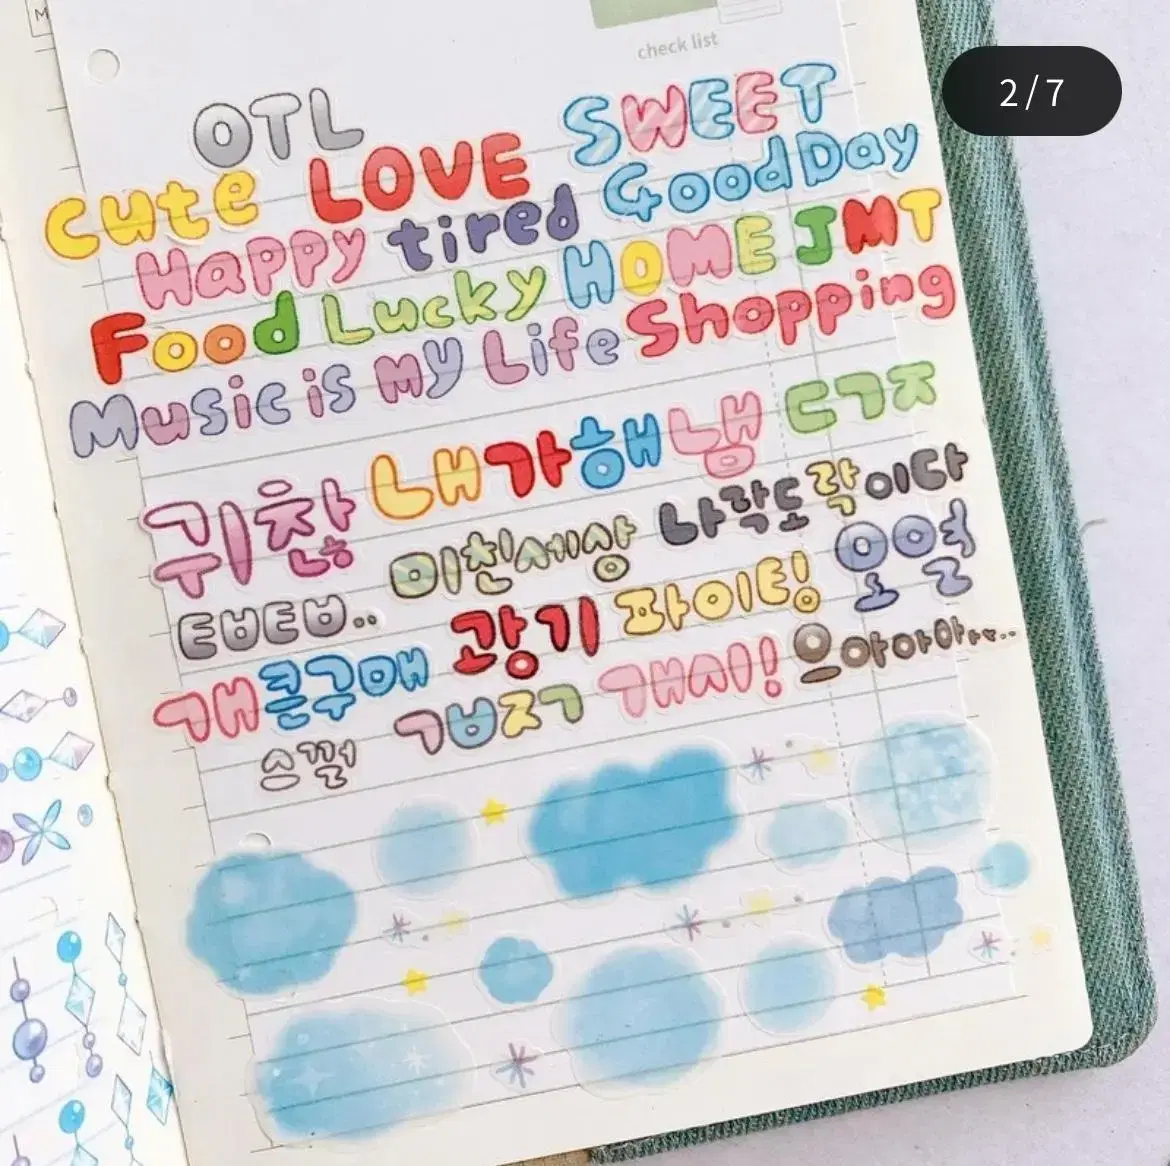 check list
2/7
OTL SWEET
cute LOVE GoodDay
Happy tired HOME JMT
Food Lucky Shopping
Music is my Life
귀찮 내가해냄 ㄷㄱㅈ
미친세상 나락도락이다
ㅌㅂㅌㅂ.. 광기 파이팅! 오열
개큰구매 개시! 으아아아
ㄱㅂㅈㄱ
스껄